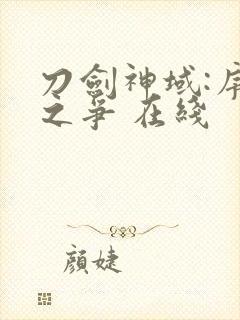 刀劍神域:
之爭 在綫
顏婕